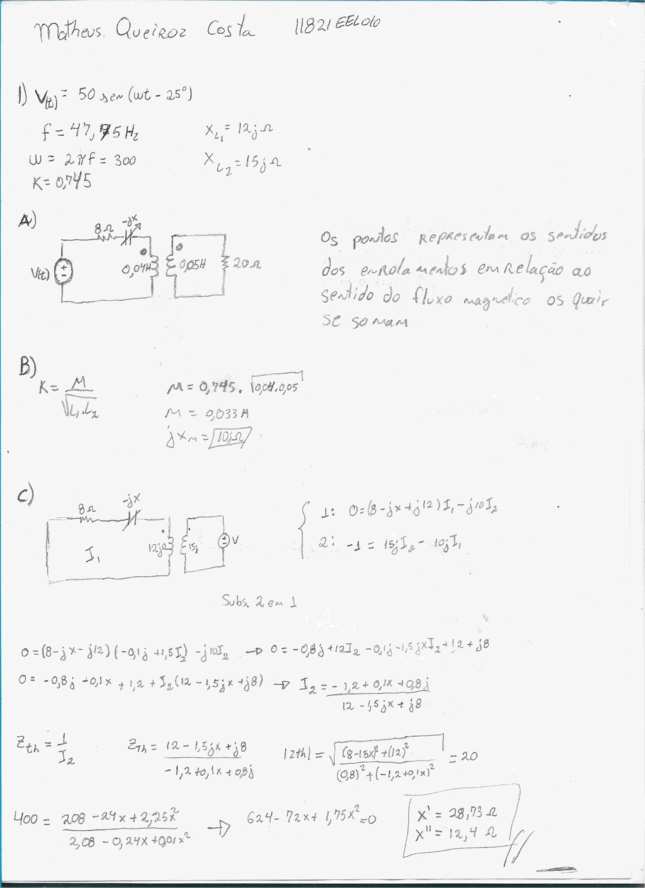 Matheus Queiroz Costa 11821EEL010
1) V(t) = 50 sen (wt - 25°)
f = 47,75 Hz XL1 = 12j Ω
w = 2πf = 300 XL2 = 15j Ω
K = 0,745
A)
8Ω -jX
V(t) 0,04H 0,05H 20Ω
Os pontos representam os sentidos
dos enrolamentos em relação ao
sentido do fluxo magnetico os quais
se somam
B)
K = M / √L1.L2 M = 0,745 . √0,04.0,05
M = 0,033 H
jXM = 10jΩ
C)
8Ω -jX
I1 12jΩ 15j V
1: 0=(8-jx+j12)I1-j10I2
2: -1 = 15jI2 - 10jI1
Subs. 2 em 1
0=(8-jx-j12)(-0,1j+1,5I2)-j10I2 → 0=-0,8j+12I2-0,1j-1,5jxI2+1,2+j8
0=-0,8j+0,1x+1,2+I2(12-1,5jx+j8) → I2 = -1,2+0,1x+0,8j / 12-1,5jx+j8
Zth = 1 / I2 Zth = 12-1,5jx+j8 / -1,2+0,1x+0,8j |Zth| = √(8-1,5x)²+(12)² / (0,8)²+(-1,2+0,1x)² = 20
400 = 208-24x+2,25x² / 2,08-0,24x+0,01x² → 624-72x+1,75x²=0
X' = 28,73 Ω
X'' = 12,4 Ω